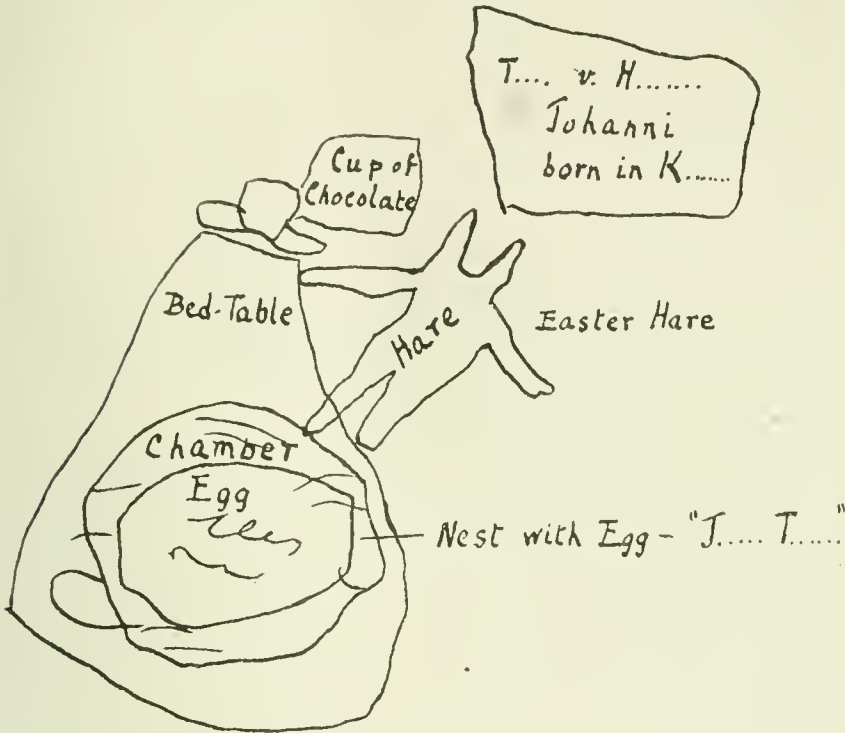 T.... v. H.......
Johanni
born in K......
Cup of
Chocolate
Bed-Table
Hare
Easter Hare
Chamber
Egg
Nest with Egg - "J..... T....."